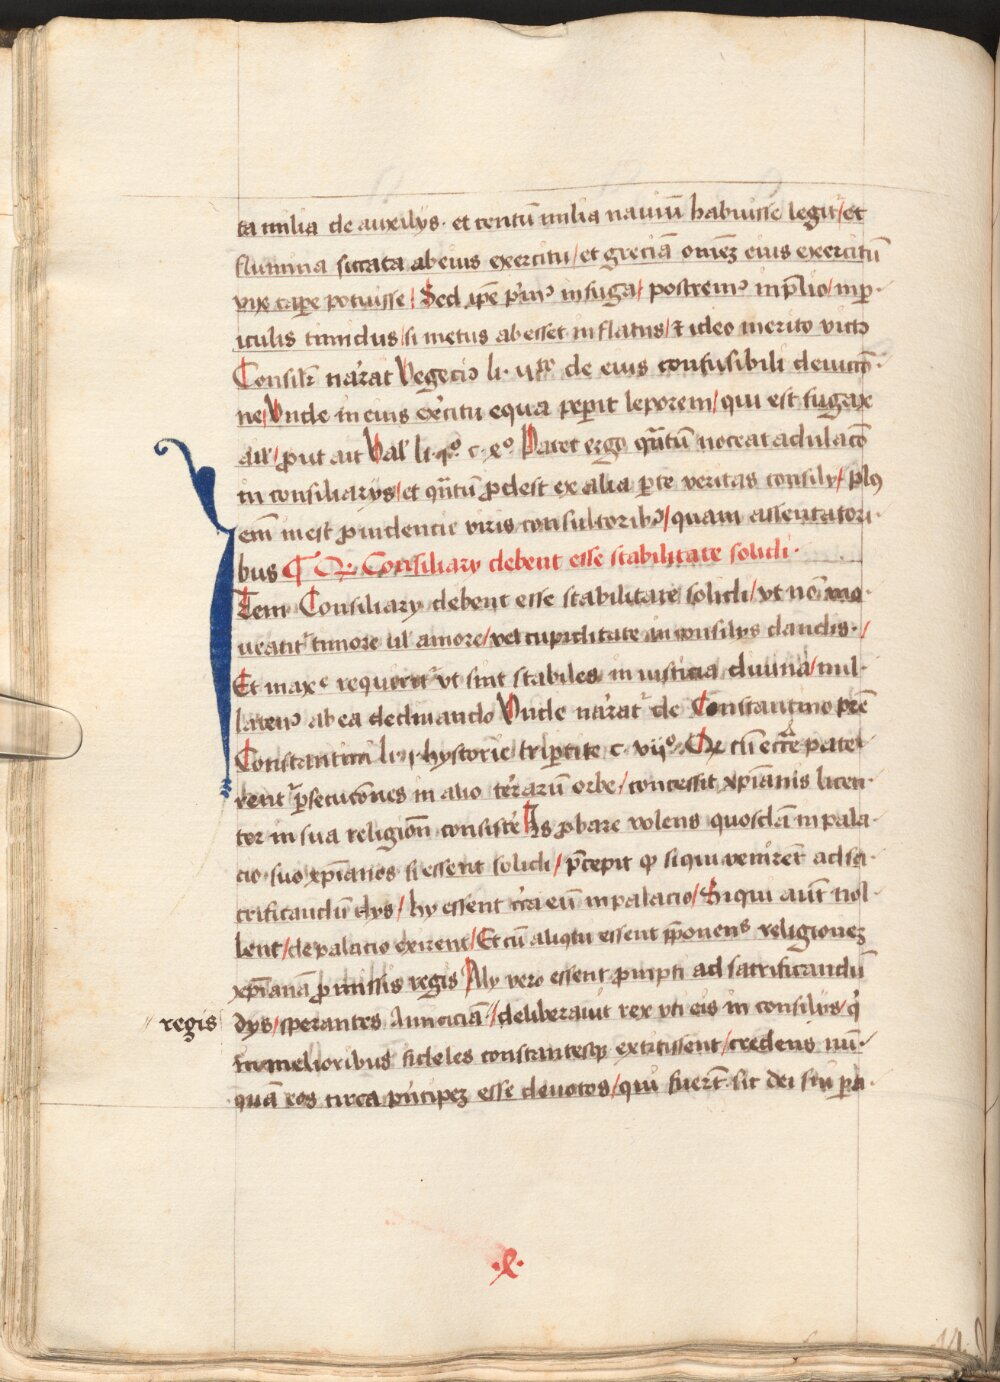 ta milia de auxilijs · et centū milia nauiū habuisse legit᷑ / et
flumina siccata ab eius exercitu / et greciā omēꝫ eius exercitū
vix cape potuisse / Sed ip̄e pͥmꝰ in fuga / postremꝰ in p̄lio / in ꝑ·
iculis timidus / si metus abesset inflatus / ⁊ ideo merito victꝰ
Consilr̄ narrat Vegeciꝰ li· de eius confusibili deuictō·
ne / Vnde in eius ex̄citu equa peperit leporem / qui est fugax
aīl / ꝓut ait Val̄ li· c· xº Patet ergo q̄ntū noceat adulacō
in consiliarijs / et q̄ntū ꝓdest ex alia ꝑte veritas consilij / plꝰ
em̄ inest prudencie viris consultoribꝰ / quam assentatori·
bus ¶ Qꝫ Consiliarij debent esse stabilitate solidi ·
Item Consiliarij debent esse stabilitate solidi / vt nō mo·
ueant᷑ timore ul̄ amore / vel cupiditate in consilijs dandis · /
Et maxͤ requirit᷑ vt sint stabiles in iusticia diuina / nul·
latenꝰ ab ea declinando Vnde narrat᷑ de Constantino pr̄e
Constantini li· hystorie triꝑtite c· vijº · Qꝫ cū eccͣe pate·
rent᷑ ꝑsecucōnes in alio terrarū orbe / concessit xp̄ianis licen·
ter in sua religion̄ consiste Is ꝓbare volens quosdā in pala·
cio suo xp̄ianos si essent solidi / p̄cepit ꝙ si qui venirēt ad sa·
crificandū dijs / hij essent cͥca eū in palacio / Si qui aūt nol·
lent / de palacio exirent / Et cū aliqui essent p̄ponens religioneꝫ
xp̄ianā ꝓmissis regis Alij vero essent prompti ad sacrificandū
regis dijs / sperantes Amiciciā · / deliberauit rex vti eis in consilijs / qͥ
in melioribus fideles constantesqꝫ extitissent / credens nū·
quā eos circa pͥncipeꝫ esse deuotos / qui fuerīt sic dei sui ꝑa·
·x·